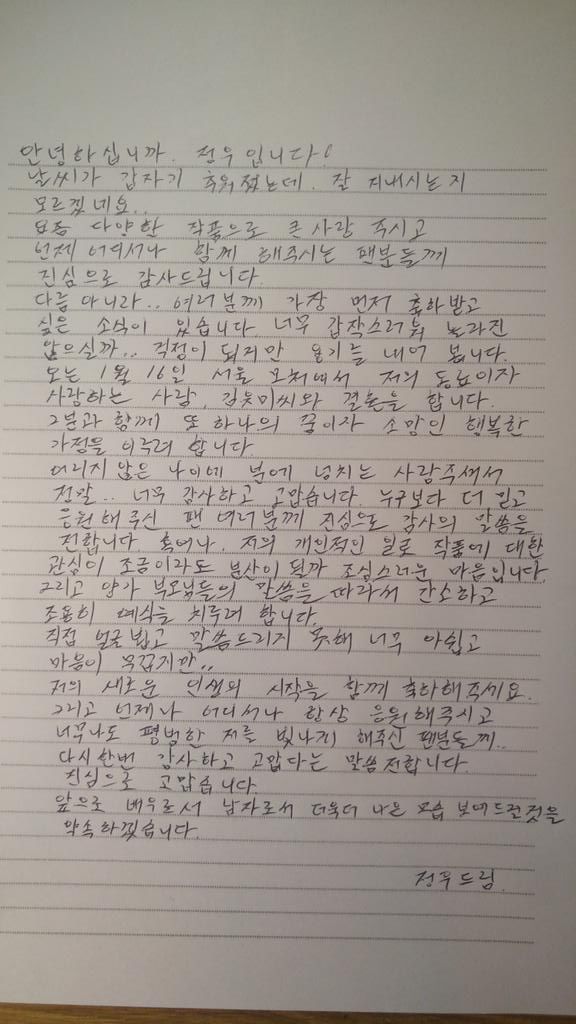 안녕하십니까. 정우입니다!
날씨가 갑자기 추워졌는데. 잘 지내시는지
모르겠네요..
요즘 다양한 작품으로 큰 사랑 주시고
언제 어디서나 함께 해주시는 팬분들께
진심으로 감사드립니다.
다름 아니라.. 여러분께 가장 먼저 축하받고
싶은 소식이 있습니다. 너무 갑작스러워 놀라진
않으실까.. 걱정이 되지만 용기를 내어 봅니다.
오는 1월 16일 서울 모처에서 저의 동료이자
사랑하는 사람 김유미씨와 결혼을 합니다.
그분과 함께 또 하나의 꿈이자 소망인 행복한
가정을 이루려 합니다.
어리지 않은 나이에 분에 넘치는 사랑주셔서
정말.. 너무 감사하고 고맙습니다. 누구보다 더 믿고
응원해 주신 팬 여러분께 진심으로 감사의 말씀을
전합니다. 혹여나. 저의 개인적인 일로 작품에 대한
관심이 조금이라도 분산이 될까 조심스러운 마음입니다.
그리고 양가 부모님들의 말씀을 따라서 간소하고
조용히 예식을 치루려 합니다.
직접 얼굴 뵙고 말씀드리지 못해 너무 아쉽고
마음이 무겁지만..
저의 새로운 인생의 시작을 함께 축하해주세요.
그리고 언제나 어디서나 항상 응원해주시고
너무나도 평범한 저를 빛나게 해주신 팬분들께..
다시한번 감사하고 고맙다는 말씀전합니다.
진심으로 고맙습니다.
앞으로 배우로서 남자로서 더욱더 나은 모습 보여드릴것을
약속하겠습니다.
정우드림.